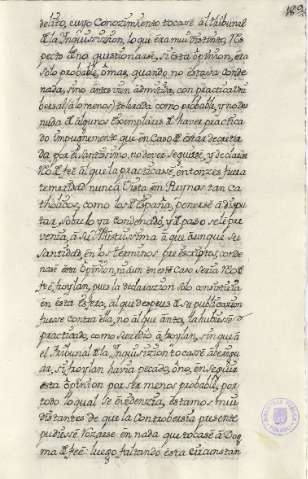 189
delito, cuyo Conozimiento tocase al tribunal
de la Inquisizion, lo que era mui distinto, Res
pecto de no questionarse, si esta opinion, era
solo probable, o mas, quando no estava conde
nada, sino antes vien admitida, con practica Uni
bersal (a lo menos) tolerada como probable, y no des
nuda de algunos exemplares de haverse practica
do impugnemente que en Caso de estar decreta
da por su Santisimo, no deverse seguirse, y declara
Reo de feè al que la practicase, entonzes fuera
temeridad nunca Vista en Reynos tan ca
tholicos, como los de España, ponerse a dispu
tar, sobre lo ya condenado, y de paso se le pre
venia, a Su Illustrissima a que aunque Su
Santidad, en los terminos que escriptos, conde
nase esta Opinion, ni aun en este Caso seria Reo de
feè, froylan, pues la declarazion solo constituia
en este efecto, al que despues de su publicazion
fuese contra ella, no al que antes, la hubiese
practicado, como sucedio a froylan, sin que a
el Tribunal de la Inquisizion tocase adeliqui
dar, si froylan havia pecado, o no, en seguir
esta opinion por ser menos probable, por
todo lo qual se evidenzia, estamos mui
distantes de que la Controbersia presente
pudiese Rozarse en nada que tocase a Dog
ma de feè: luego faltando esta circunstan